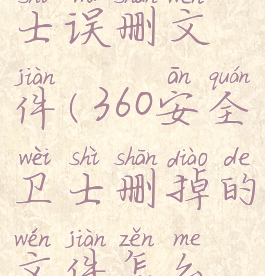 士误删文
jiàn ān quán
件(360安全
wèi shì shān diào de
卫士删掉的
wén jiàn zěn me
文件怎么